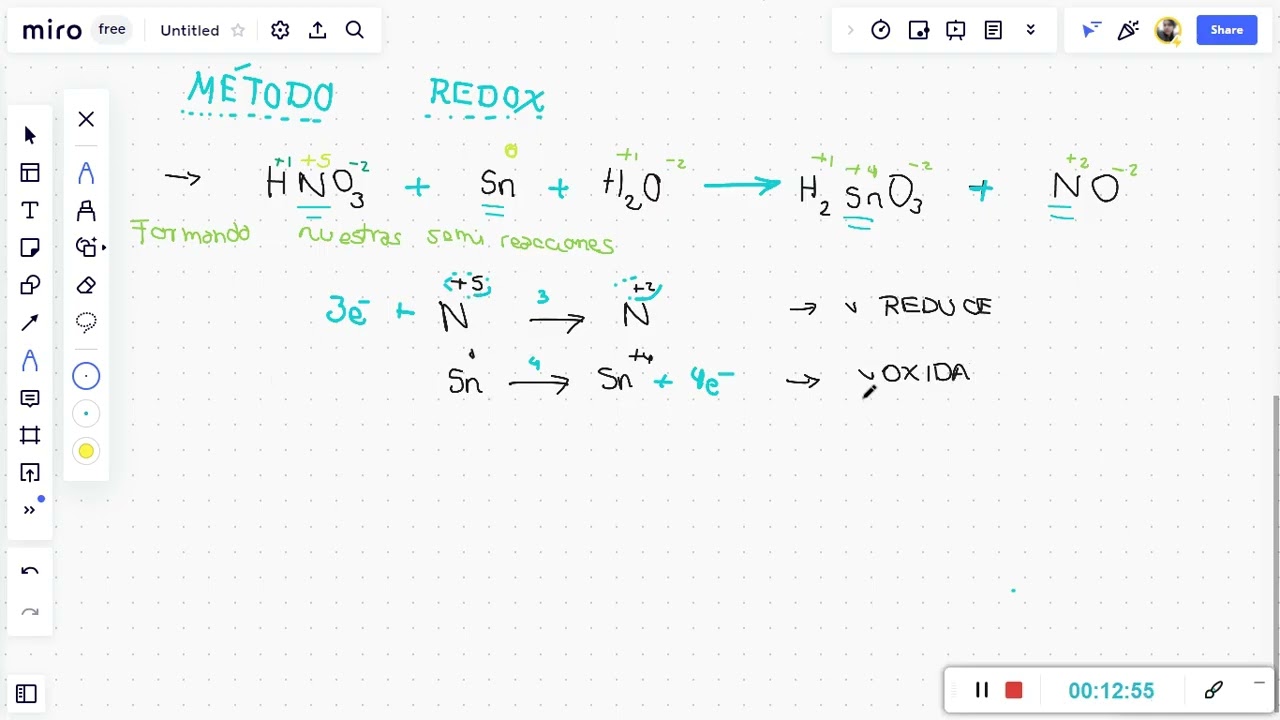 miro free Untitled Share
MÉTODO REDOX
+1 +5 -2 0 +1 -2 +1 +4 -2 +2 -2
→ HNO3 + Sn + H2O → H2SnO3 + NO
Formando nuestras semi reacciones
3e- + N+5 3→ N+2 → REDUCE
Sn 4→ Sn+4 + 4e- → OXIDA
00:12:55